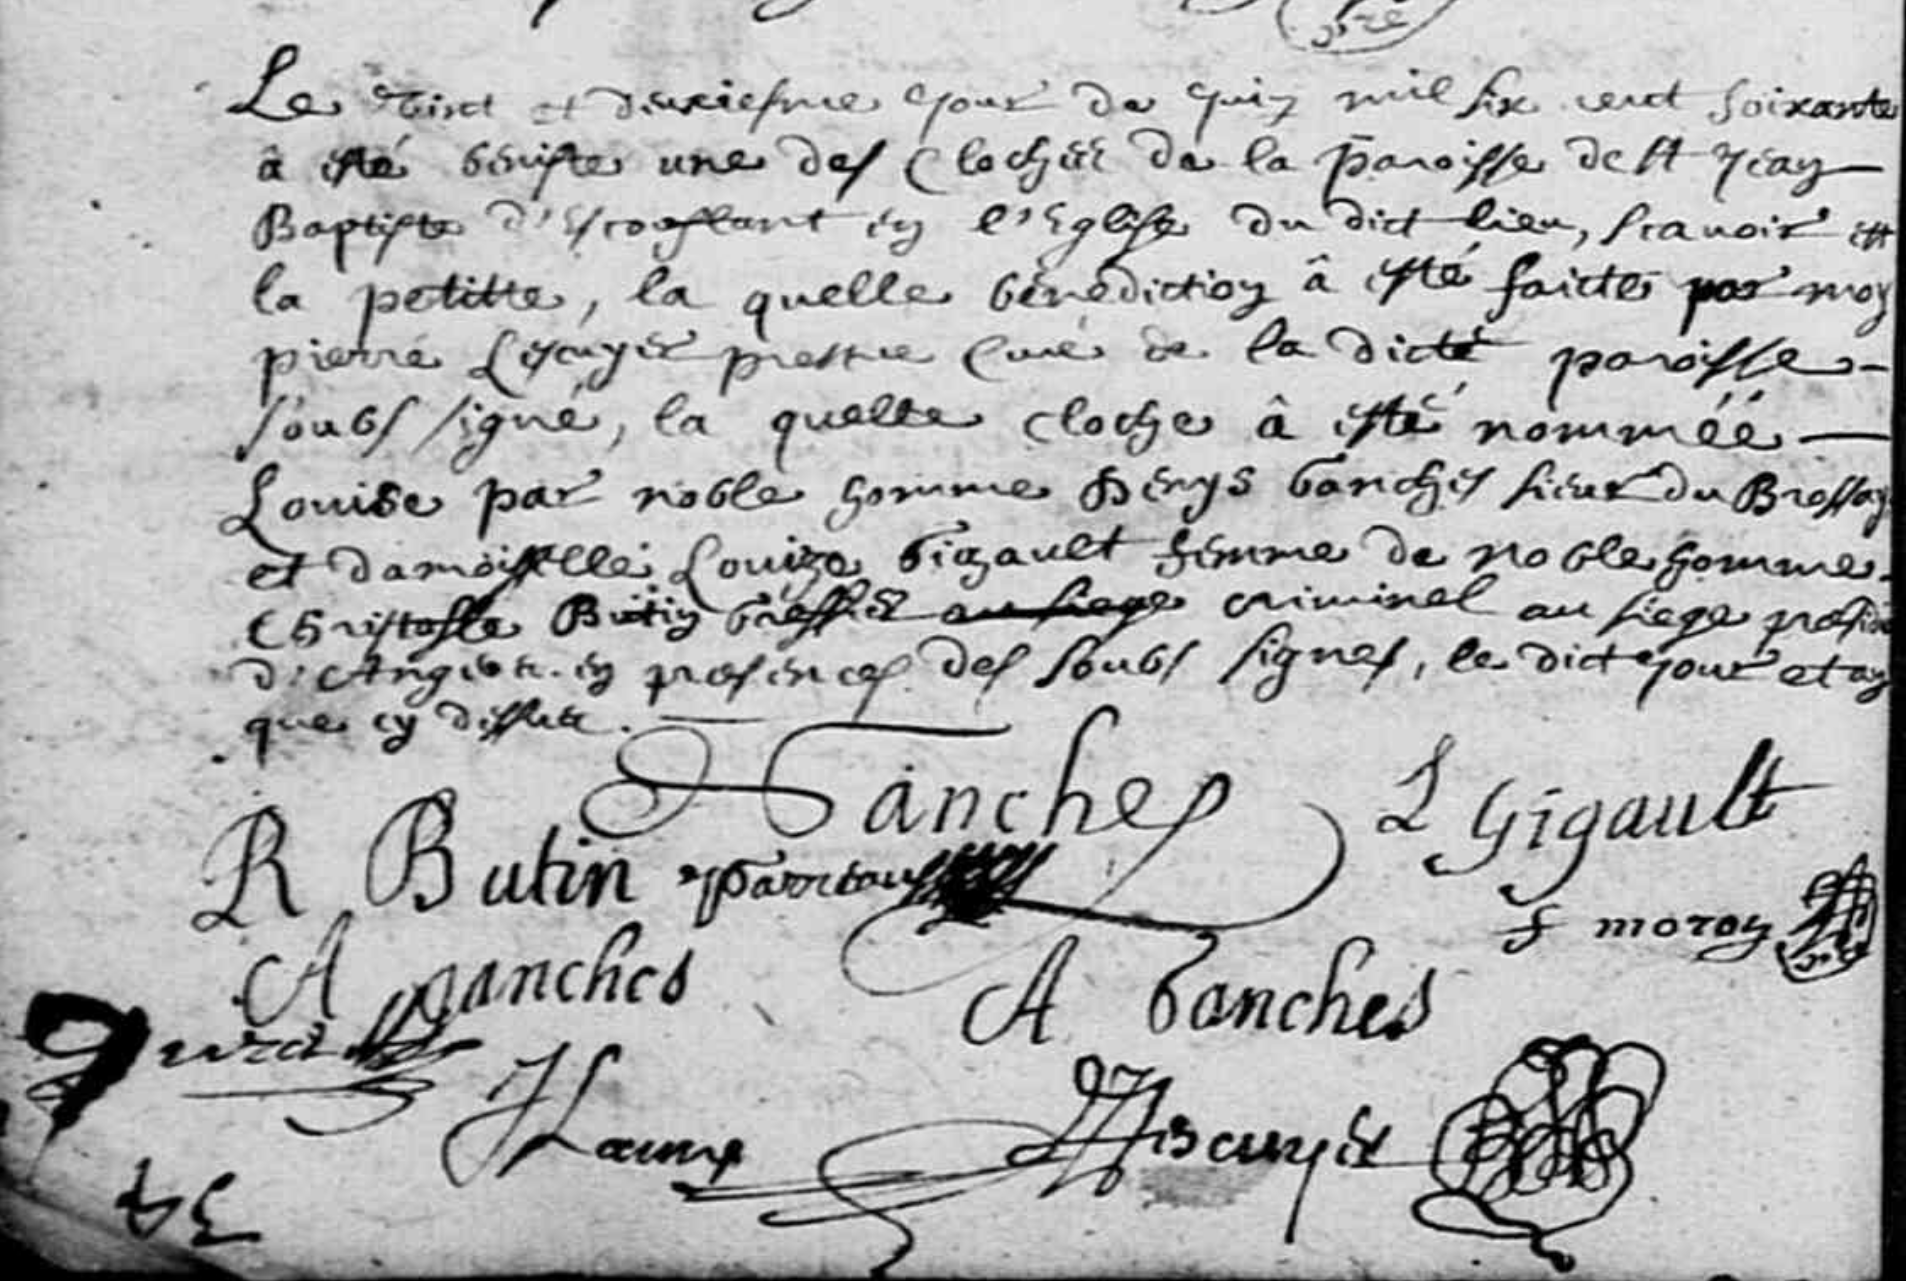 Le vinct et deuxiesme jour de juin mil six cent soixante
à esté béniste une des cloches de la paroisse de st Jean
Baptiste d'Escouflant en l'Eglise du dict lieu, scavoir est
la petitte, la quelle bénédiction â esté faicte par moy
pierre Lescuyer prestre curé de la dicte paroisse
soubs signé, la quelle cloche â esté nommée
Louise par noble homme Henys Ganches sieur du Brossay
et damoiselle Louize Gigault femme de noble homme
Christofle Butin Greffier au siege criminel au siege presidi
d'Angers en presences des soubs signes, le dict jour et an
que cy dessus.
H Ganches L Gigault
R Butin
f moron
A Ganches A Ganches
Lescuyer